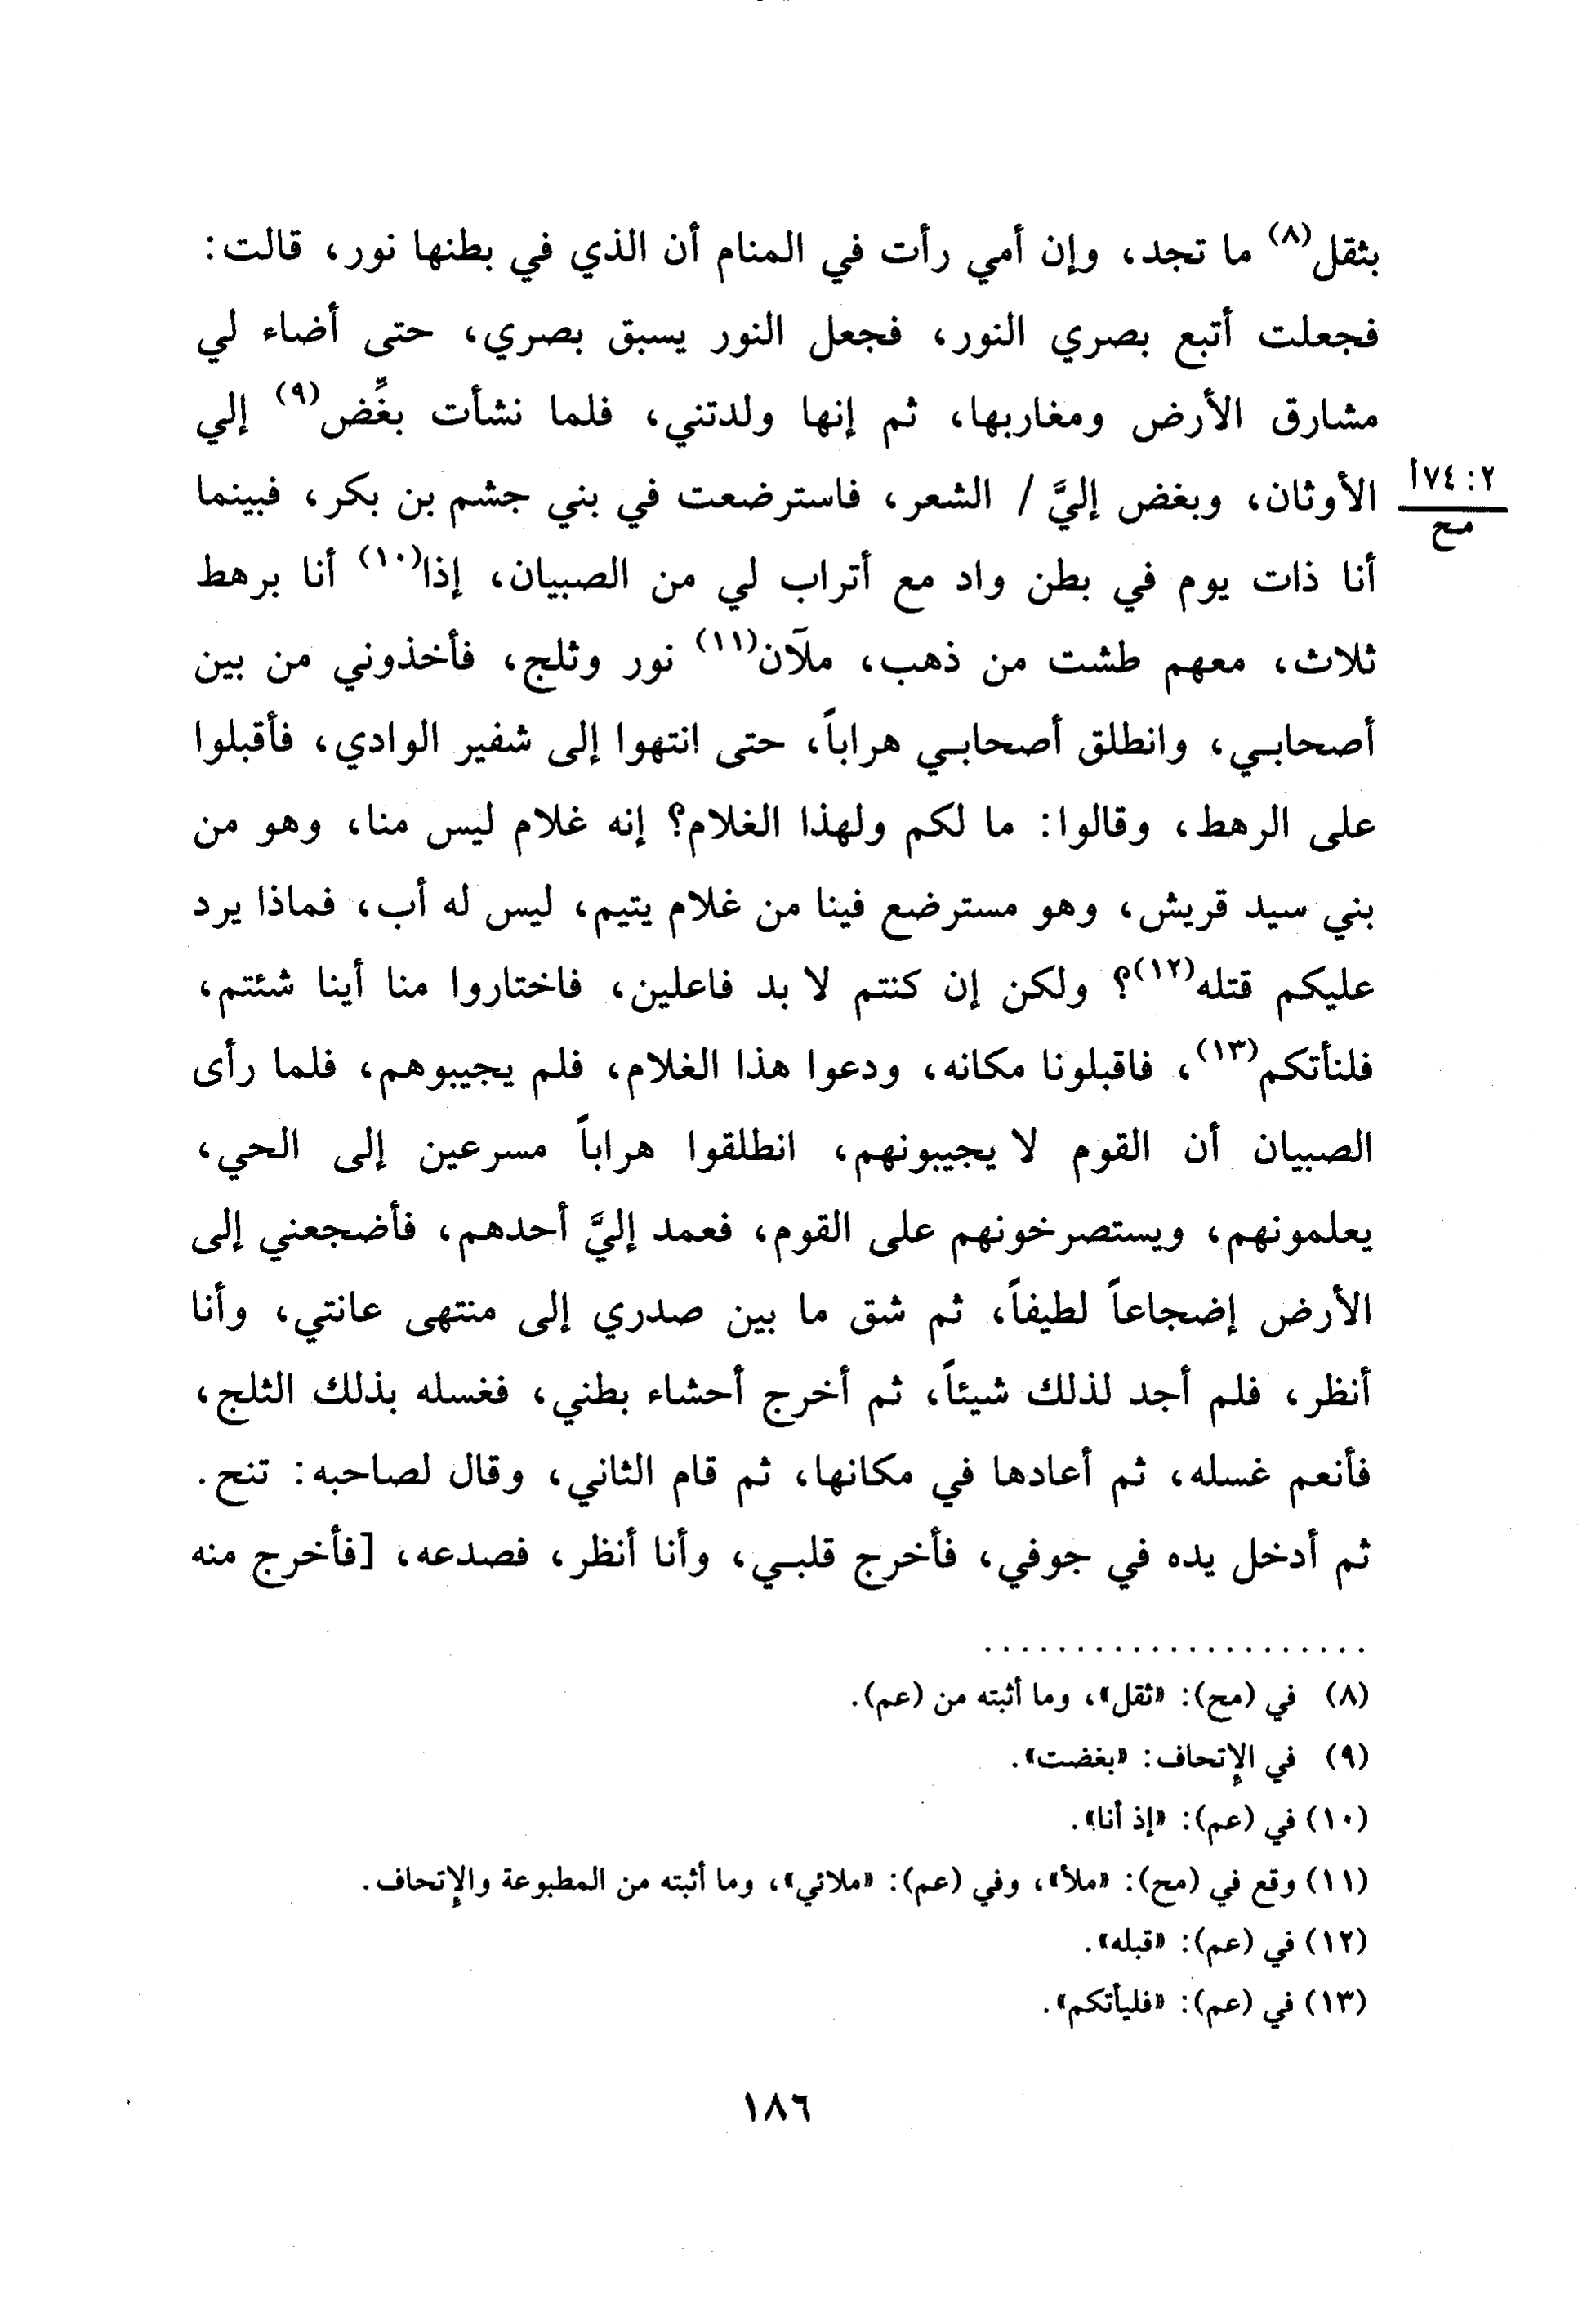 بثقل(٨) ما تجد، وإن أمي رأت في المنام أن الذي في بطنها نور، قالت:
فجعلت أتبع بصري النور، فجعل النور يسبق بصري، حتى أضاء لي
مشارق الأرض ومغاربها، ثم إنها ولدتني، فلما نشأت بغِّض(٩) إلي
الأوثان، وبغض إليَّ / الشعر، فاسترضعت في بني جشم بن بكر، فبينما
٢: ٧٤أ
مح
أنا ذات يوم في بطن واد مع أتراب لي من الصبيان، إذا(١٠) أنا برهط
ثلاث، معهم طشت من ذهب، ملآن(١١) نور وثلج، فأخذوني من بين
أصحابي، وانطلق أصحابي هراباً، حتى انتهوا إلى شفير الوادي، فأقبلوا
على الرهط، وقالوا: ما لكم ولهذا الغلام؟ إنه غلام ليس منا، وهو من
بني سيد قريش، وهو مسترضع فينا من غلام يتيم، ليس له أب، فماذا يرد
عليكم قتله(١٢)؟ ولكن إن كنتم لا بد فاعلين، فاختاروا منا أينا شئتم،
فلنأتكم(١٣)، فاقبلونا مكانه، ودعوا هذا الغلام، فلم يجيبوهم، فلما رأى
الصبيان أن القوم لا يجيبونهم، انطلقوا هراباً مسرعين إلى الحي،
يعلمونهم، ويستصرخونهم على القوم، فعمد إليَّ أحدهم، فأضجعني إلى
الأرض إضجاعاً لطيفاً، ثم شق ما بين صدري إلى منتهى عانتي، وأنا
أنظر، فلم أجد لذلك شيئاً، ثم أخرج أحشاء بطني، فغسله بذلك الثلج،
فأنعم غسله، ثم أعادها في مكانها، ثم قام الثاني، وقال لصاحبه: تنح.
ثم أدخل يده في جوفي، فأخرج قلبي، وأنا أنظر، فصدعه، [فأخرج منه
. . . . . . . . . . . . . . . . . . . . .
(٨) في (مح): «ثقل»، وما أثبته من (عم).
(٩) في الإتحاف: «بغضت».
(١٠) في (عم): «إذ أنا».
(١١) وقع في (مح): «ملأ»، وفي (عم): «ملائي»، وما أثبته من المطبوعة والإتحاف.
(١٢) في (عم): «قبله».
(١٣) في (عم): «فليأتكم».
١٨٦